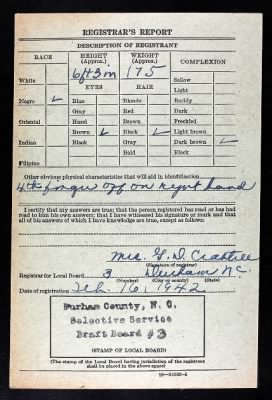 REGISTRAR'S REPORT
DESCRIPTION OF REGISTRANT
RACE HEIGHT (Approx.) WEIGHT (Approx.) COMPLEXION
6 ft 3 in 175
White EYES HAIR Sallow
Light
Negro ✓ Blue Blonde Ruddy
Gray Red Dark
Oriental Hazel Brown Freckled
Brown ✓ Black ✓ Light brown
Indian Black Gray Dark brown ✓
Bald Black
Filipino
Other obvious physical characteristics that will aid in identification
4th finger off on right hand
I certify that my answers are true; that the person registered has read or has had
read to him his own answers; that I have witnessed his signature or mark and that
all of his answers of which I have knowledge are true, except as follows:
Mrs. G. D. Crabtree
(Signature of registrar)
Registrar for Local Board 3 Durham N.C.
(Number) (City or county) (State)
Date of registration Feb. 16, 1942
Durham County, N. C.
Selective Service
Draft Board #3
(STAMP OF LOCAL BOARD)
(The stamp of the Local Board having jurisdiction of the registrant
shall be placed in the above space)